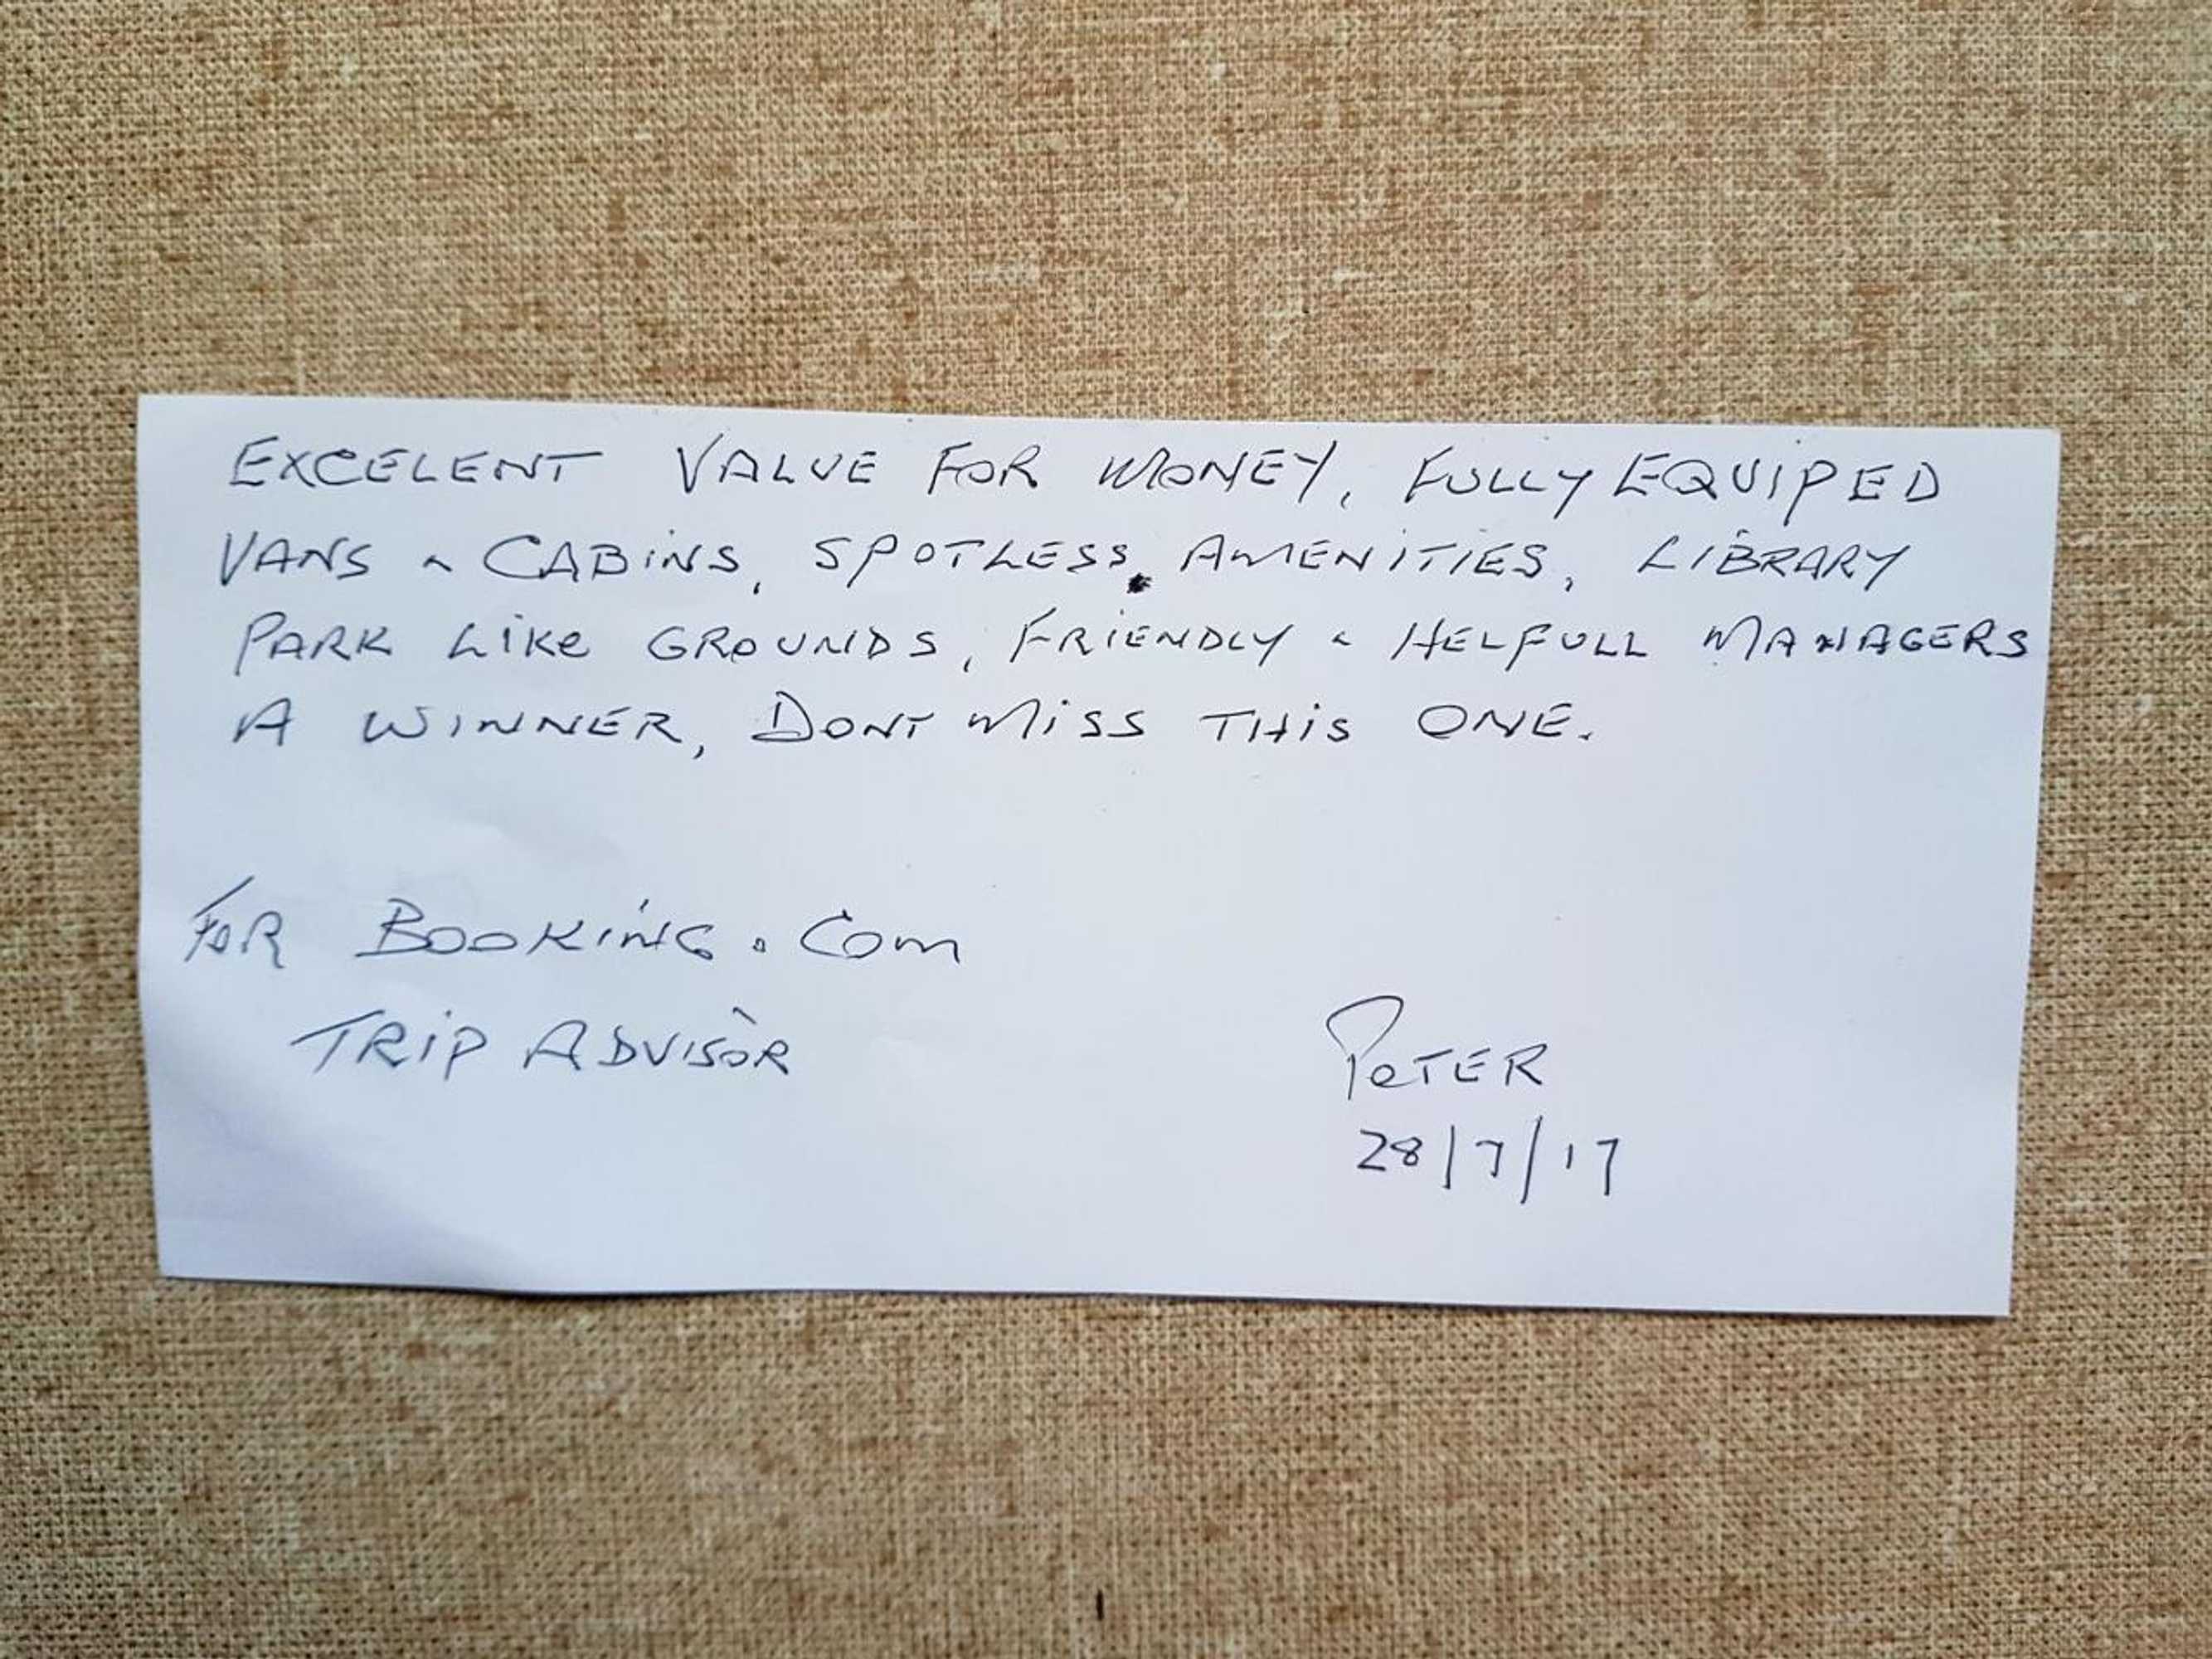 EXCELENT VALUE FOR MONEY, FULLY EQUIPED
VANS & CABINS, SPOTLESS. AMENITIES, LIBRARY
PARK LIKE GROUNDS, FRIENDLY & HELPFULL MANAGERS
A WINNER, DONT MISS THIS ONE.
FOR BOOKING.COM
TRIP ADVISOR
PETER
28/7/17